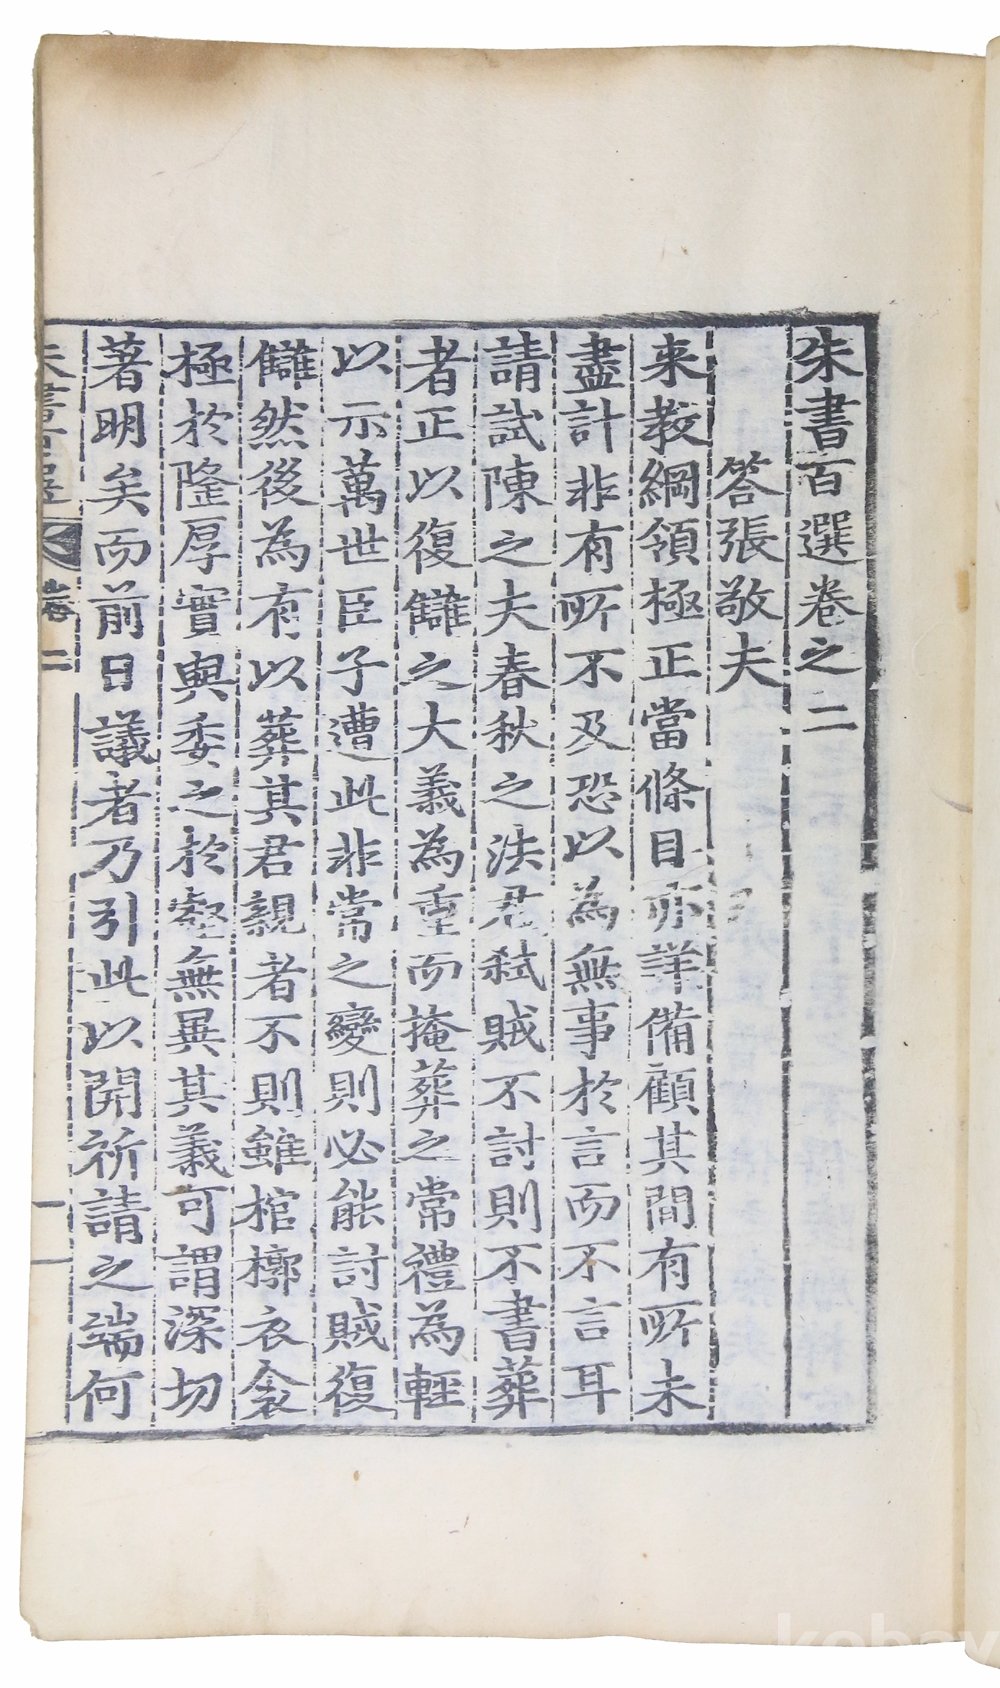 朱書百選卷之二
答張敬夫
来教綱領極正當條目亦詳備顧其間有所未
盡計非有所不及恐以為無事於言而不言耳
請試陳之夫春秋之法君弑賊不討則不書葬
者正以復讎之大義為重而掩葬之常禮為輕
以示萬世臣子遭此非常之變則必能討賊復
讎然後為有以葬其君親者不則雖棺槨衣衾
極於隆厚實與委之於壑無異其義可謂深切
著明矣而前日議者乃引此以開祈請之端何
朱書百選 卷二
kobay